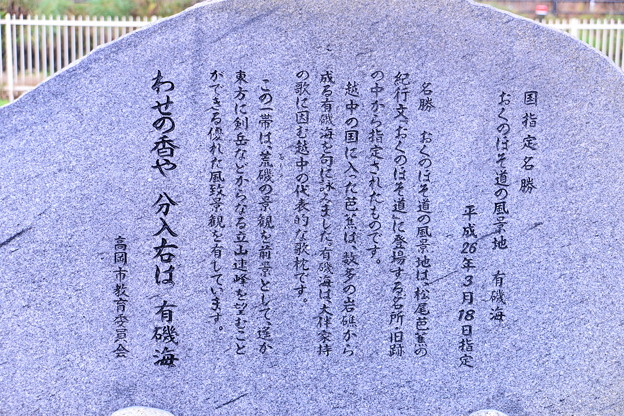 国指定名勝
おくのほそ道の風景地　有磯海
平成26年3月18日指定
名勝　おくのほそ道の風景地は、松尾芭蕉の
紀行文「おくのほそ道」に登場する名所・旧跡
の中から指定されたものです。
越中の国に入った芭蕉は、数多の岩礁から
成る有磯海を句に詠えました。有磯海は、大伴家持
の歌に因む越中の代表的な歌枕です。
この一帯は、荒磯の景観を前景として、遙か
東方に剣岳などからなる立山連峰を望むこと
ができる優れた風致景観を有しています。
わせの香や　分入右は　有磯海
高岡市教育委員会